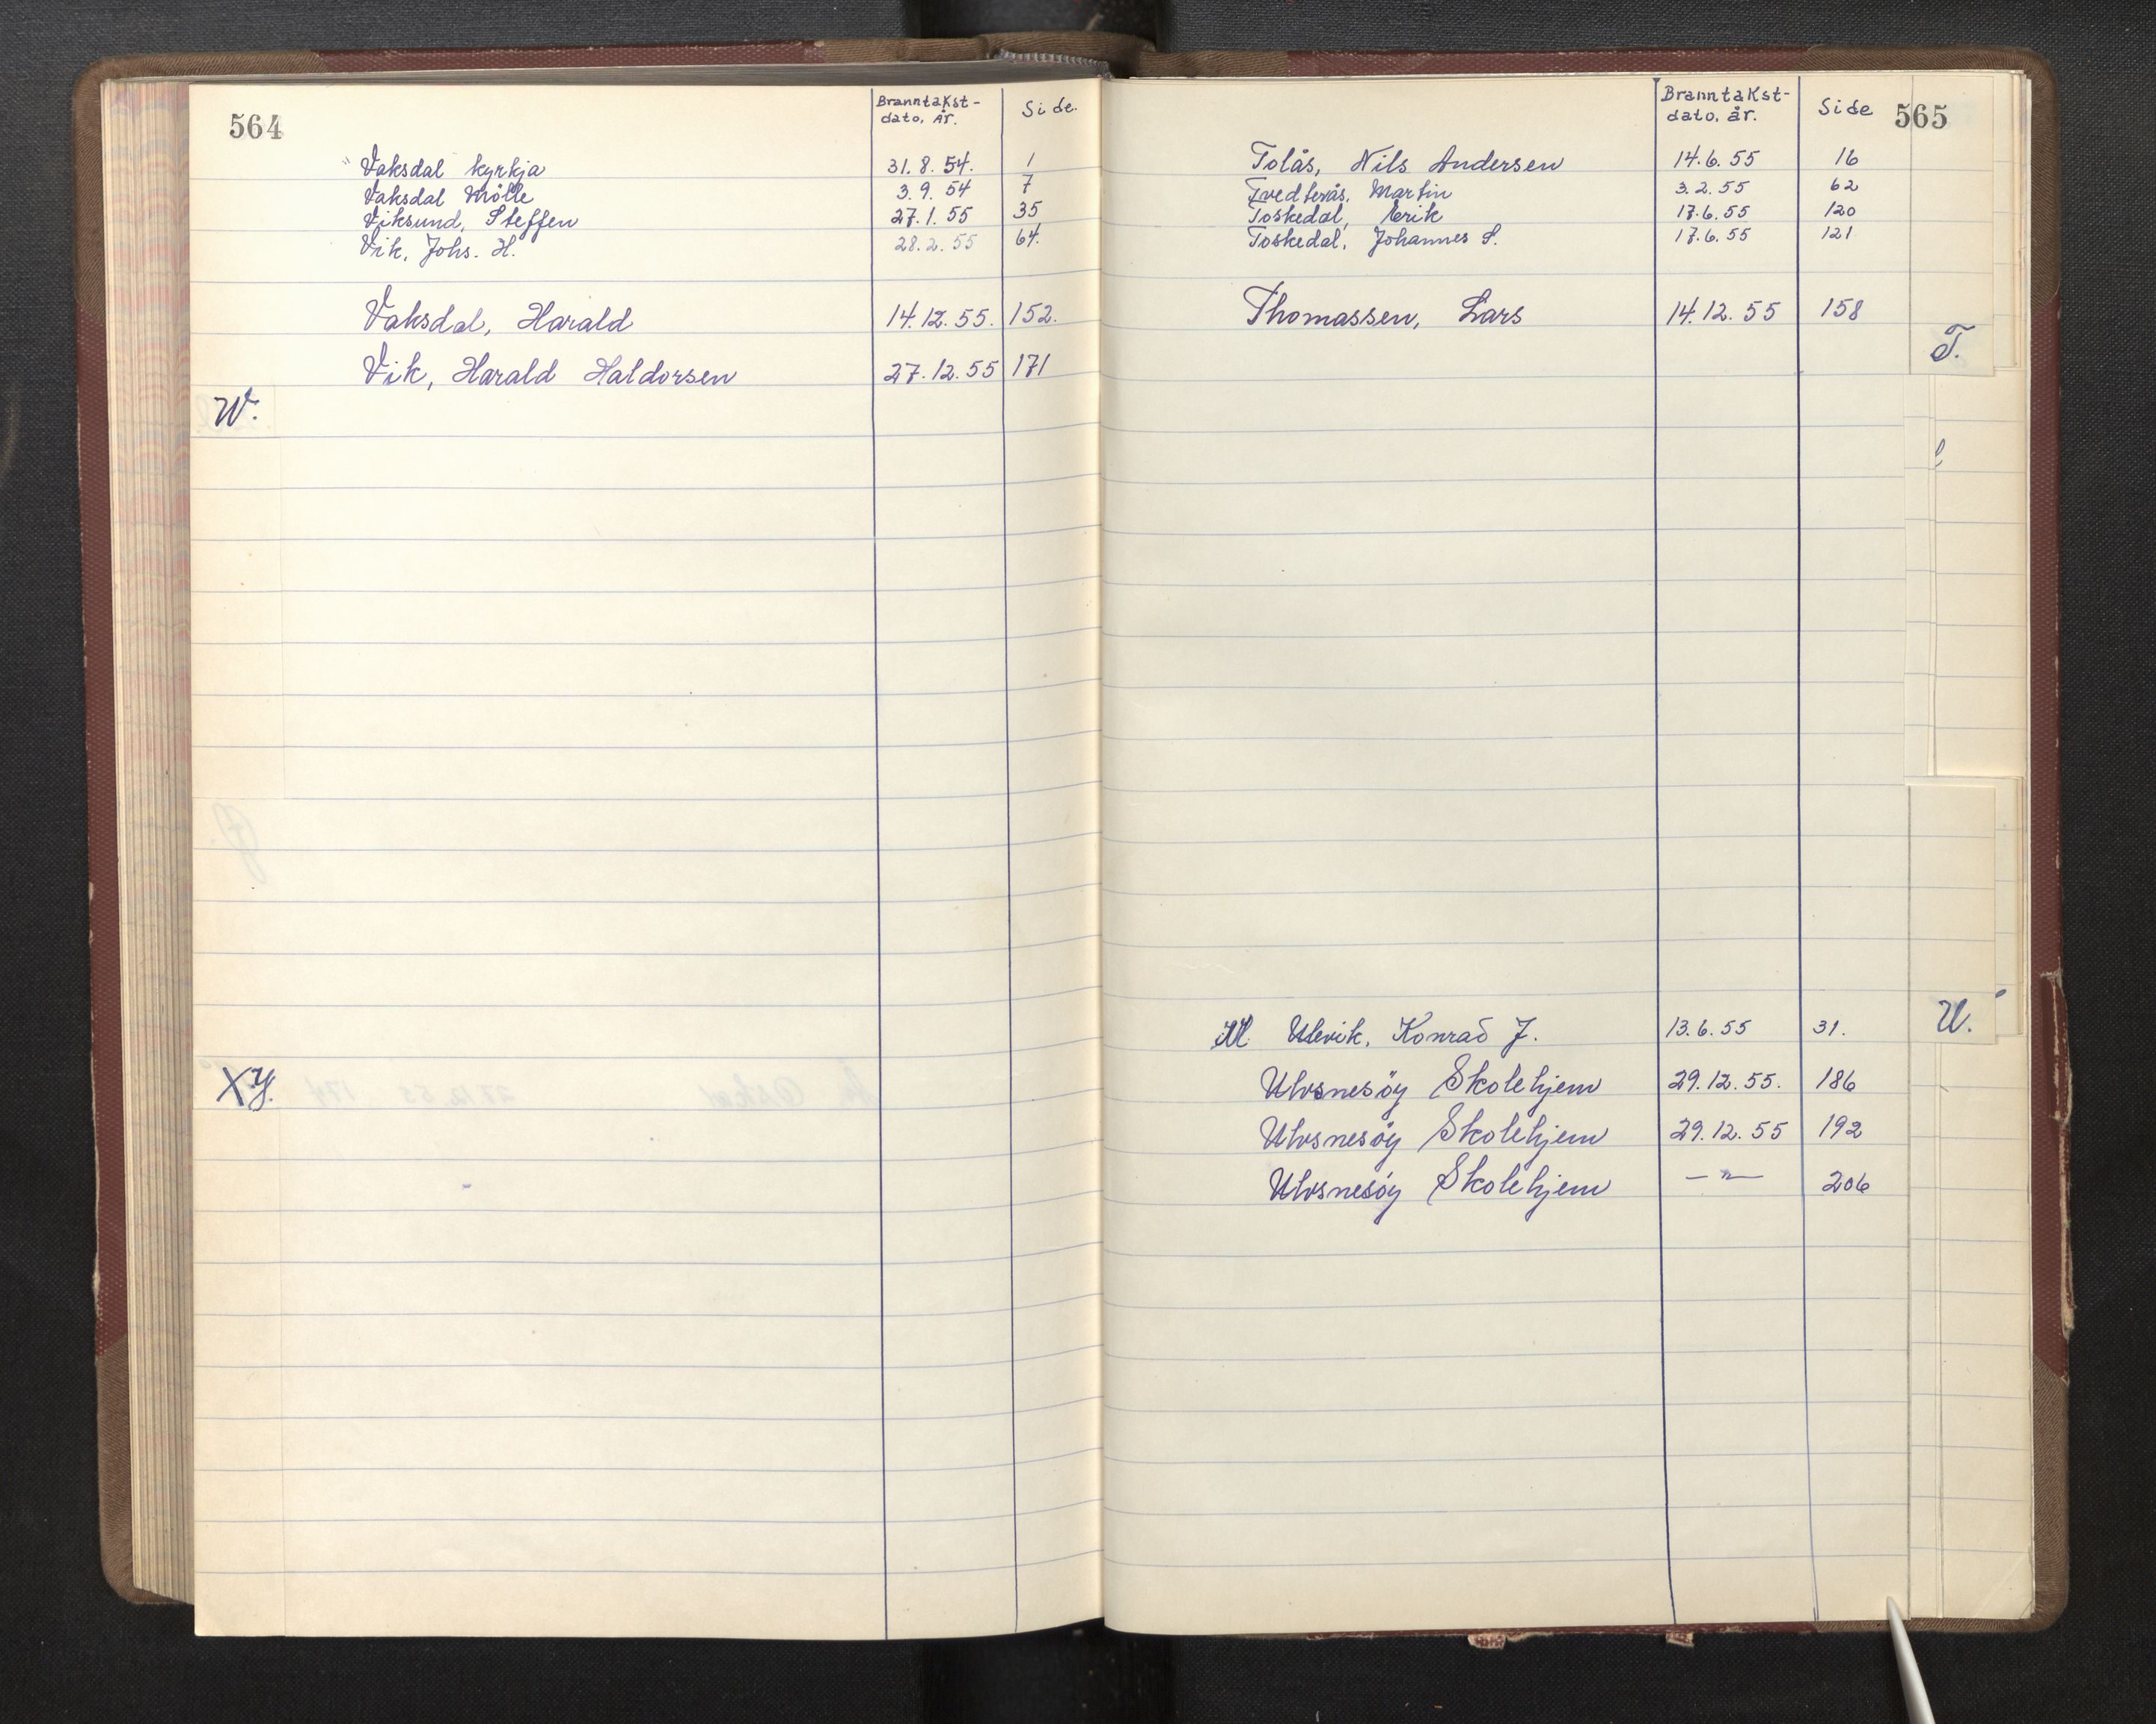 564
Branntakst-
dato, År.
Side.
" Vaksdal kyrkja 31.8.54. 1
Vaksdal Mölle 3.9.54 7
Viksund, Steffen 27.1.55 35
Vik, Johs. H. 28.2.55 64.
Vaksdal, Harald 14.12.55. 152.
Vik, Harald Haldorsen 27.12.55 171
W.
X Y.
Branntakst-
dato. år.
Side
565
Tolås, Nils Andersen 14.6.55 16
Tvedterås, Martin 3.2.55 62
Toskedal, Erik 17.6.55 120
Toskedal, Johannes S. 17.6.55 121
Thomassen, Lars 14.12.55 158
T.
Ulevik, Konrad J. 13.6.55 31.
U.
Ulvsnesöy Skolehjem 29.12.55. 186
Ulvsnesöy Skolehjem 29.12.55 192
Ulvsnesöy Skolehjem —"— 206